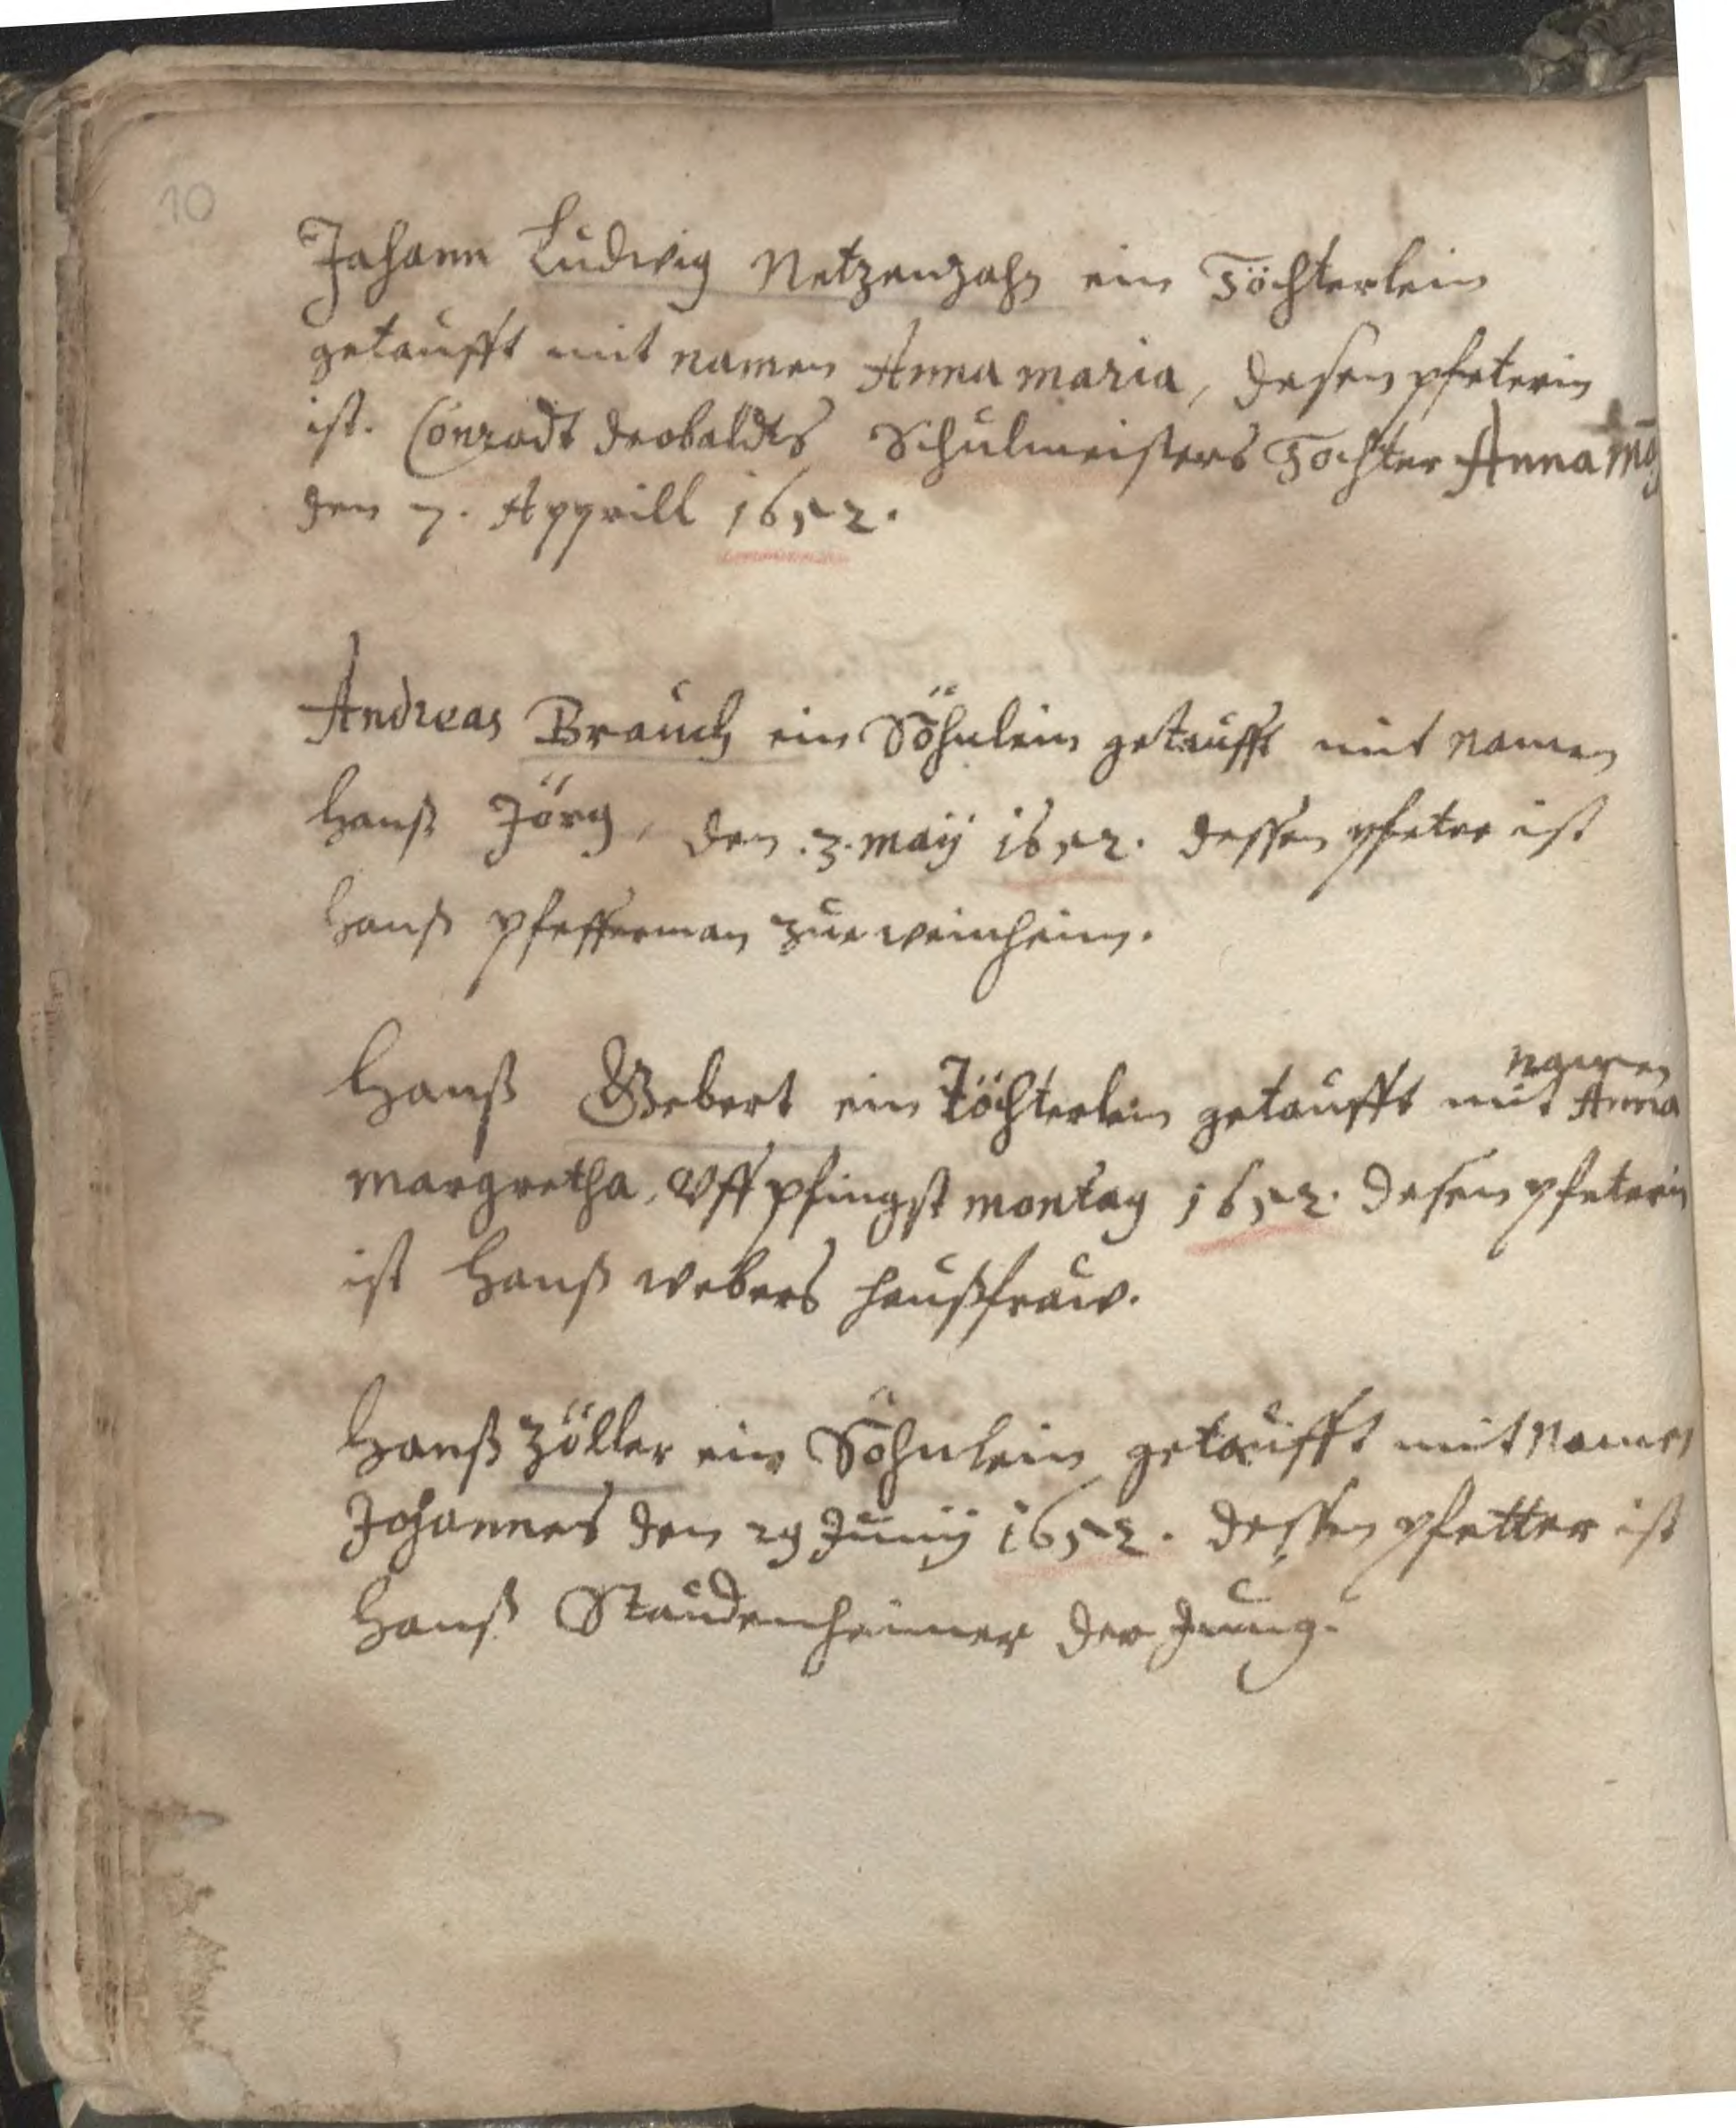 10
Johann Ludwig Netzenzahn ein Töchterlein
getaufft mit namen Anna maria, desen pfeterin
ist. Conradt deobaldts Schulmeisters Tochter Anna
den 7. Apprill 1652.
Andreas Brauch ein Söhnlein getaufft mit namen
Hanß Jörg, den .3. maÿ 1652. dessen pfeter ist
Hanß Pfefferman zue weinheim.
namen
Hanß Webert ein Töchterlein getaufft mit Anna
margretha, Vff pfingst montag 1652. desen pfeterin
ist Hanß webers haußfraw.
Hanß Zöller ein Söhnlein getaufft mit Namen
Johannes den 29 Junÿ 1652. dessen pfetter ist
Hanß Staudenheimer der Jung.